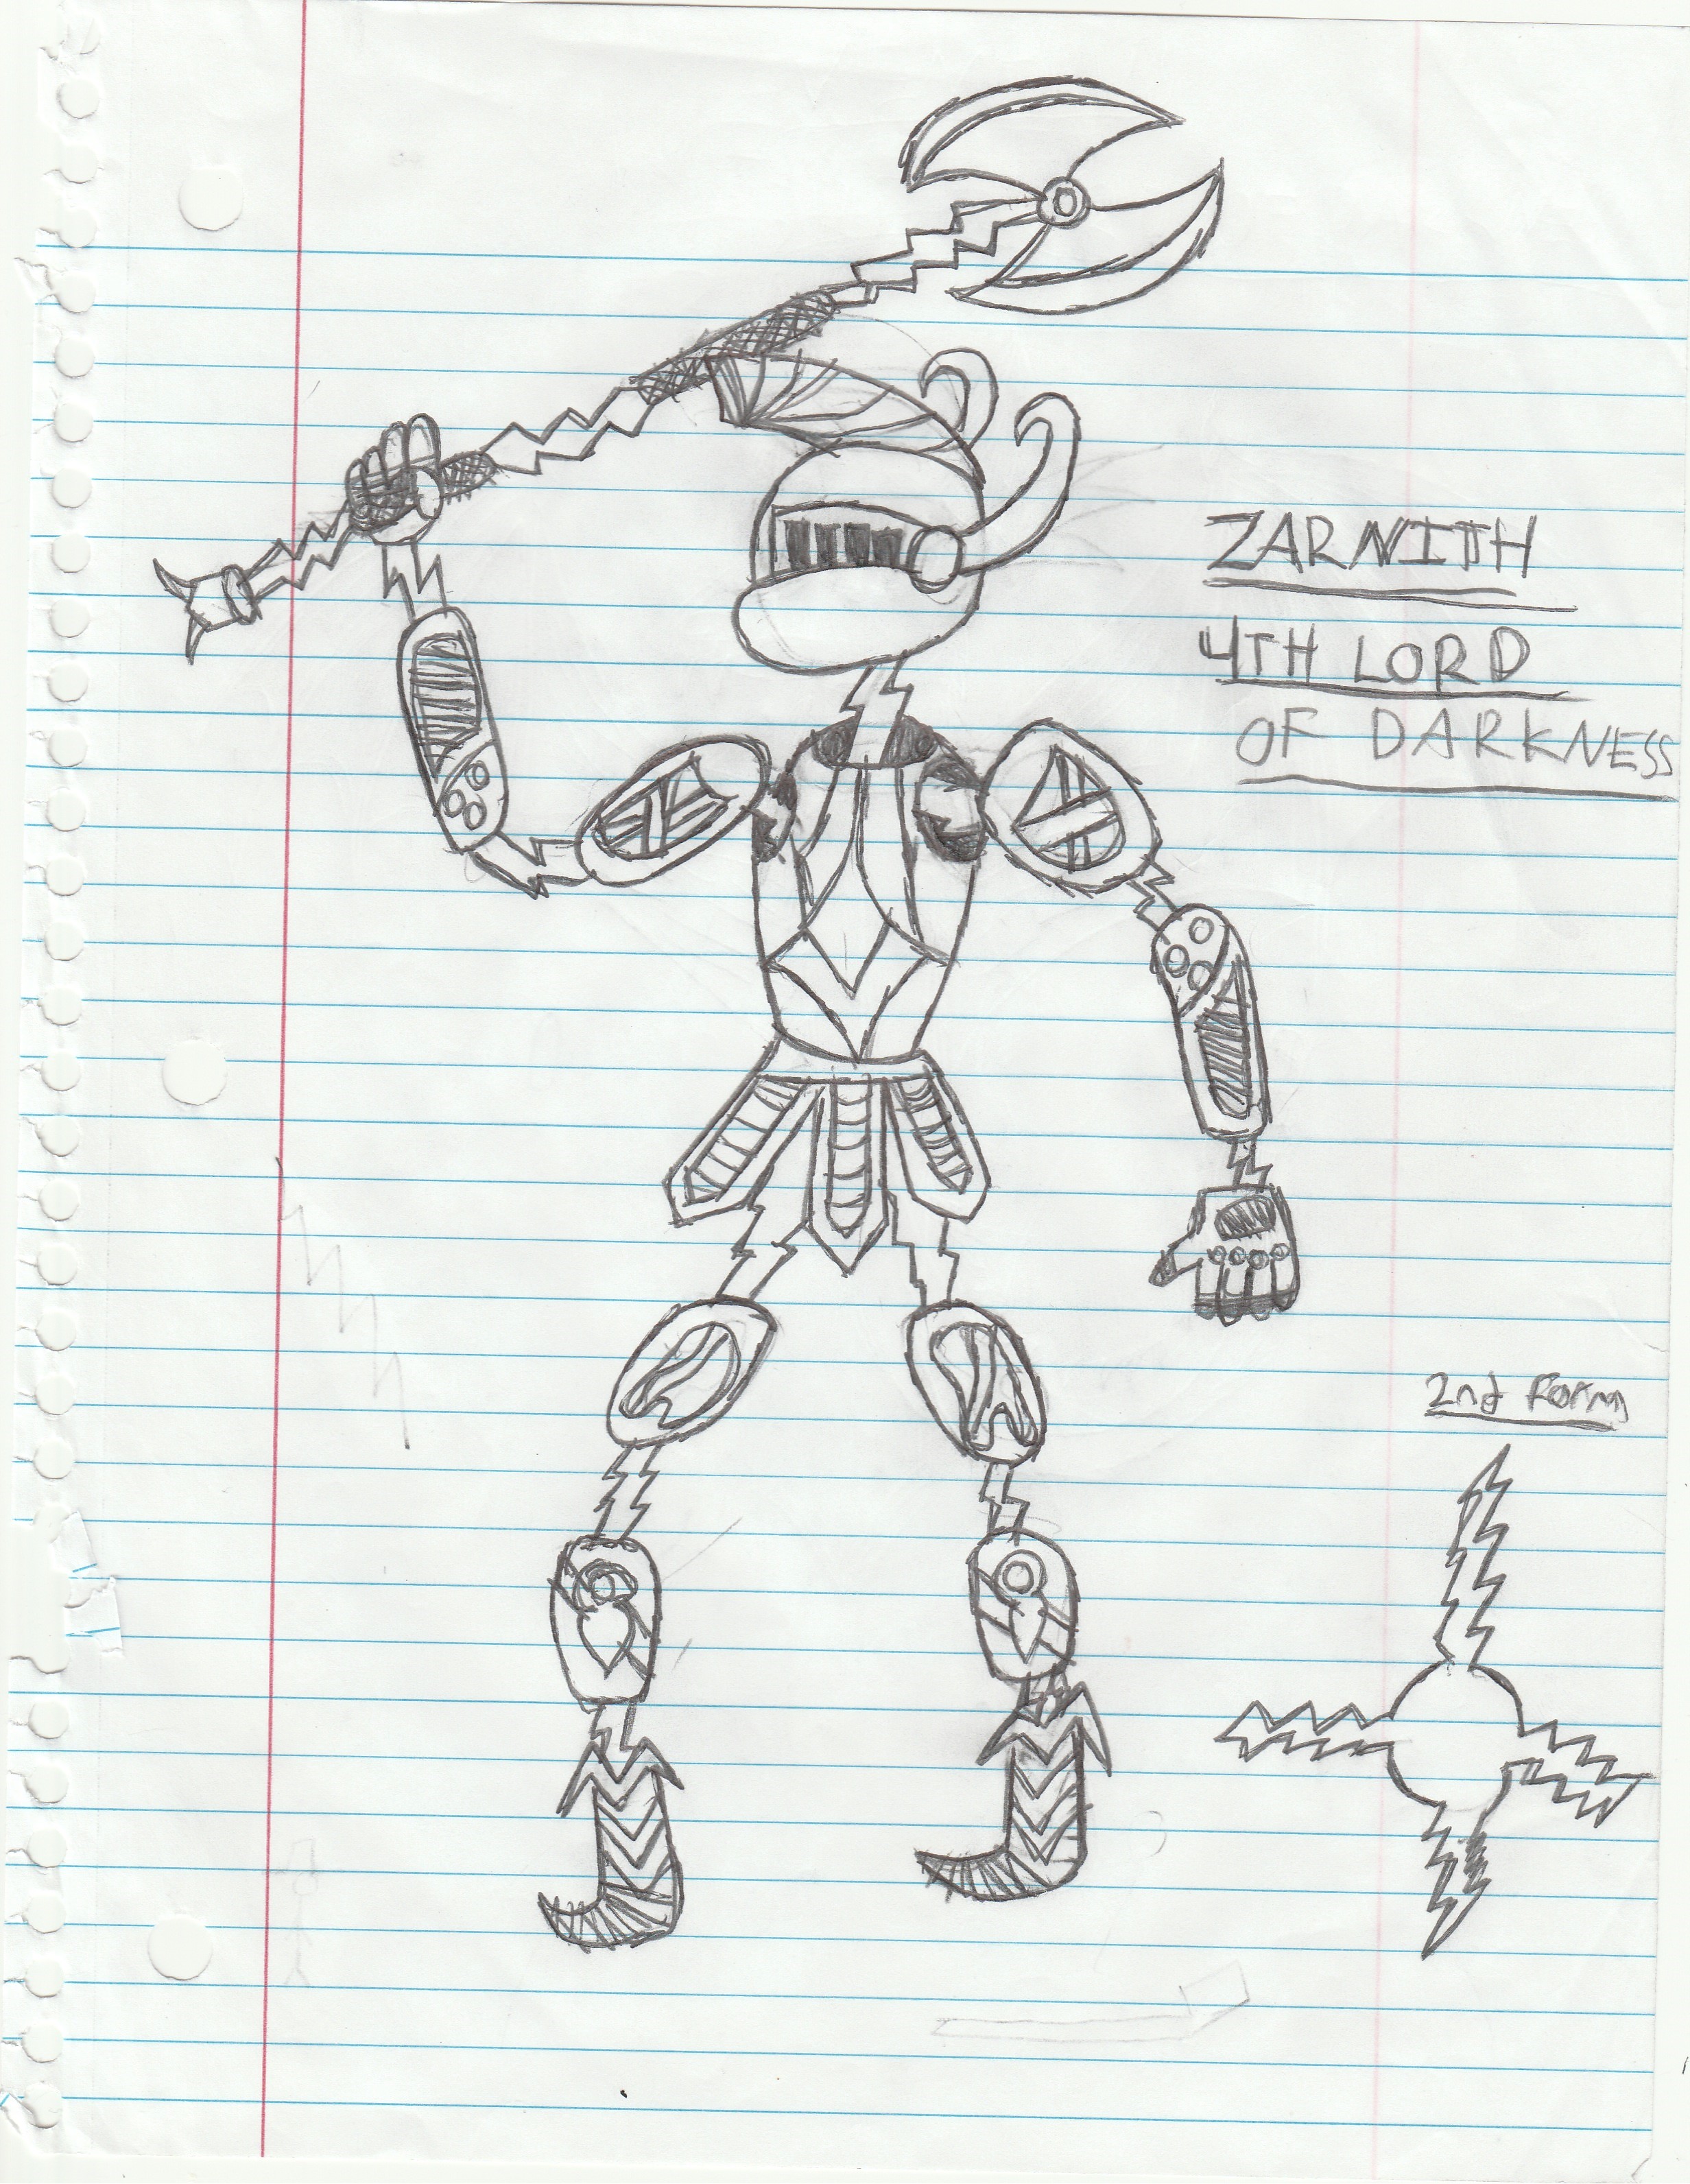 ZARNITH
4TH LORD
OF DARKNESS
2nd Form